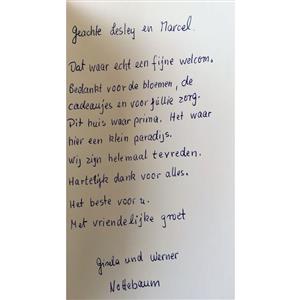 Geachte Lesley en Marcel
Dat waar echt een fijne welcom.
Bedankt voor de bloemen, de
cadeautjes en voor jüllie zorg.
Dit huis waar prima. Het waar
hier een klein paradijs.
Wij zijn helemaal tevreden.
Hartelijk dank voor alles.
Het beste voor u.
Met vriendelijke groet
Gisela und Werner
Nottebaum